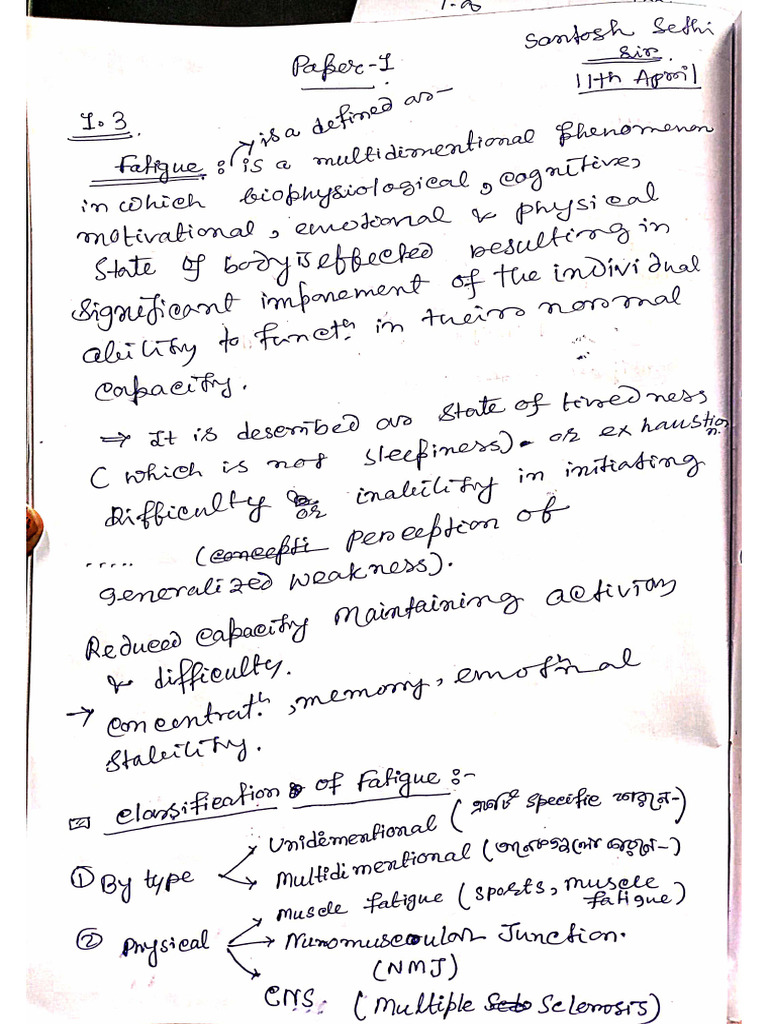 Santosh Sethi
Paper-1
Sir
11th April
1.3
is a defined as-
Fatigue: is a multidimentional phenomenon
in which biophysiological, cognitive,
motivational, emotional & physical
State of body is effected resulting in
significant impairement of the individual
ability to functn in their normal
capacity.
⇒ It is described as state of tiredness
(which is not sleepiness) or exhaustion
Difficulty or inability in initiating
..... (concepti perception of
generalized weakness).
Reduced capacity Maintaining activity
& difficulty.
→ concentratn, memory, emotional
stability.
Classification of Fatigue:-
① By type
Unidementional (একটি specific কারনে-)
Multidimentional (
② Physical
Muscle fatigue (sports, muscle fatigue)
→ Nuromuscular Junction.
(NMJ)
CNS. (Multiple Sclerosis)